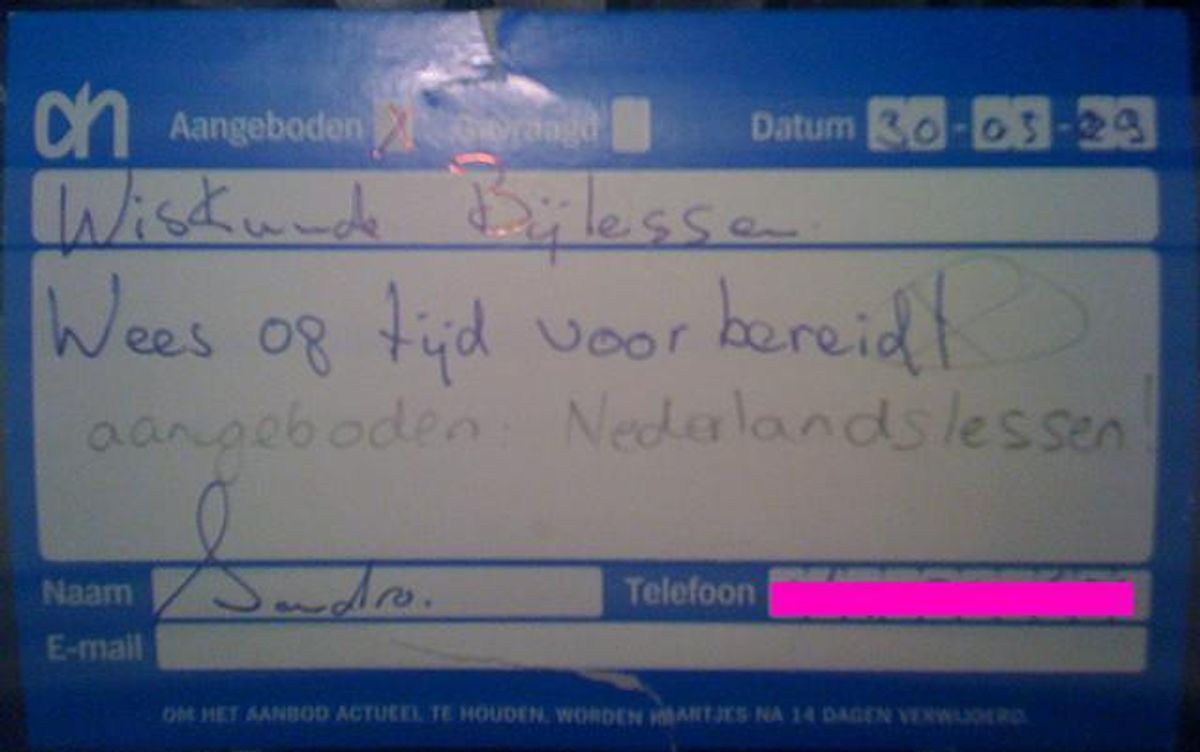 ah Aangeboden X Gevraagd Datum 30-03-29
Wiskunde Bijlessen
Wees op tijd voorbereidt
aangeboden: Nederlandslessen!
Naam Sandro. Telefoon
E-mail
OM HET AANBOD ACTUEEL TE HOUDEN, WORDEN KAARTJES NA 14 DAGEN VERWIJDERD.